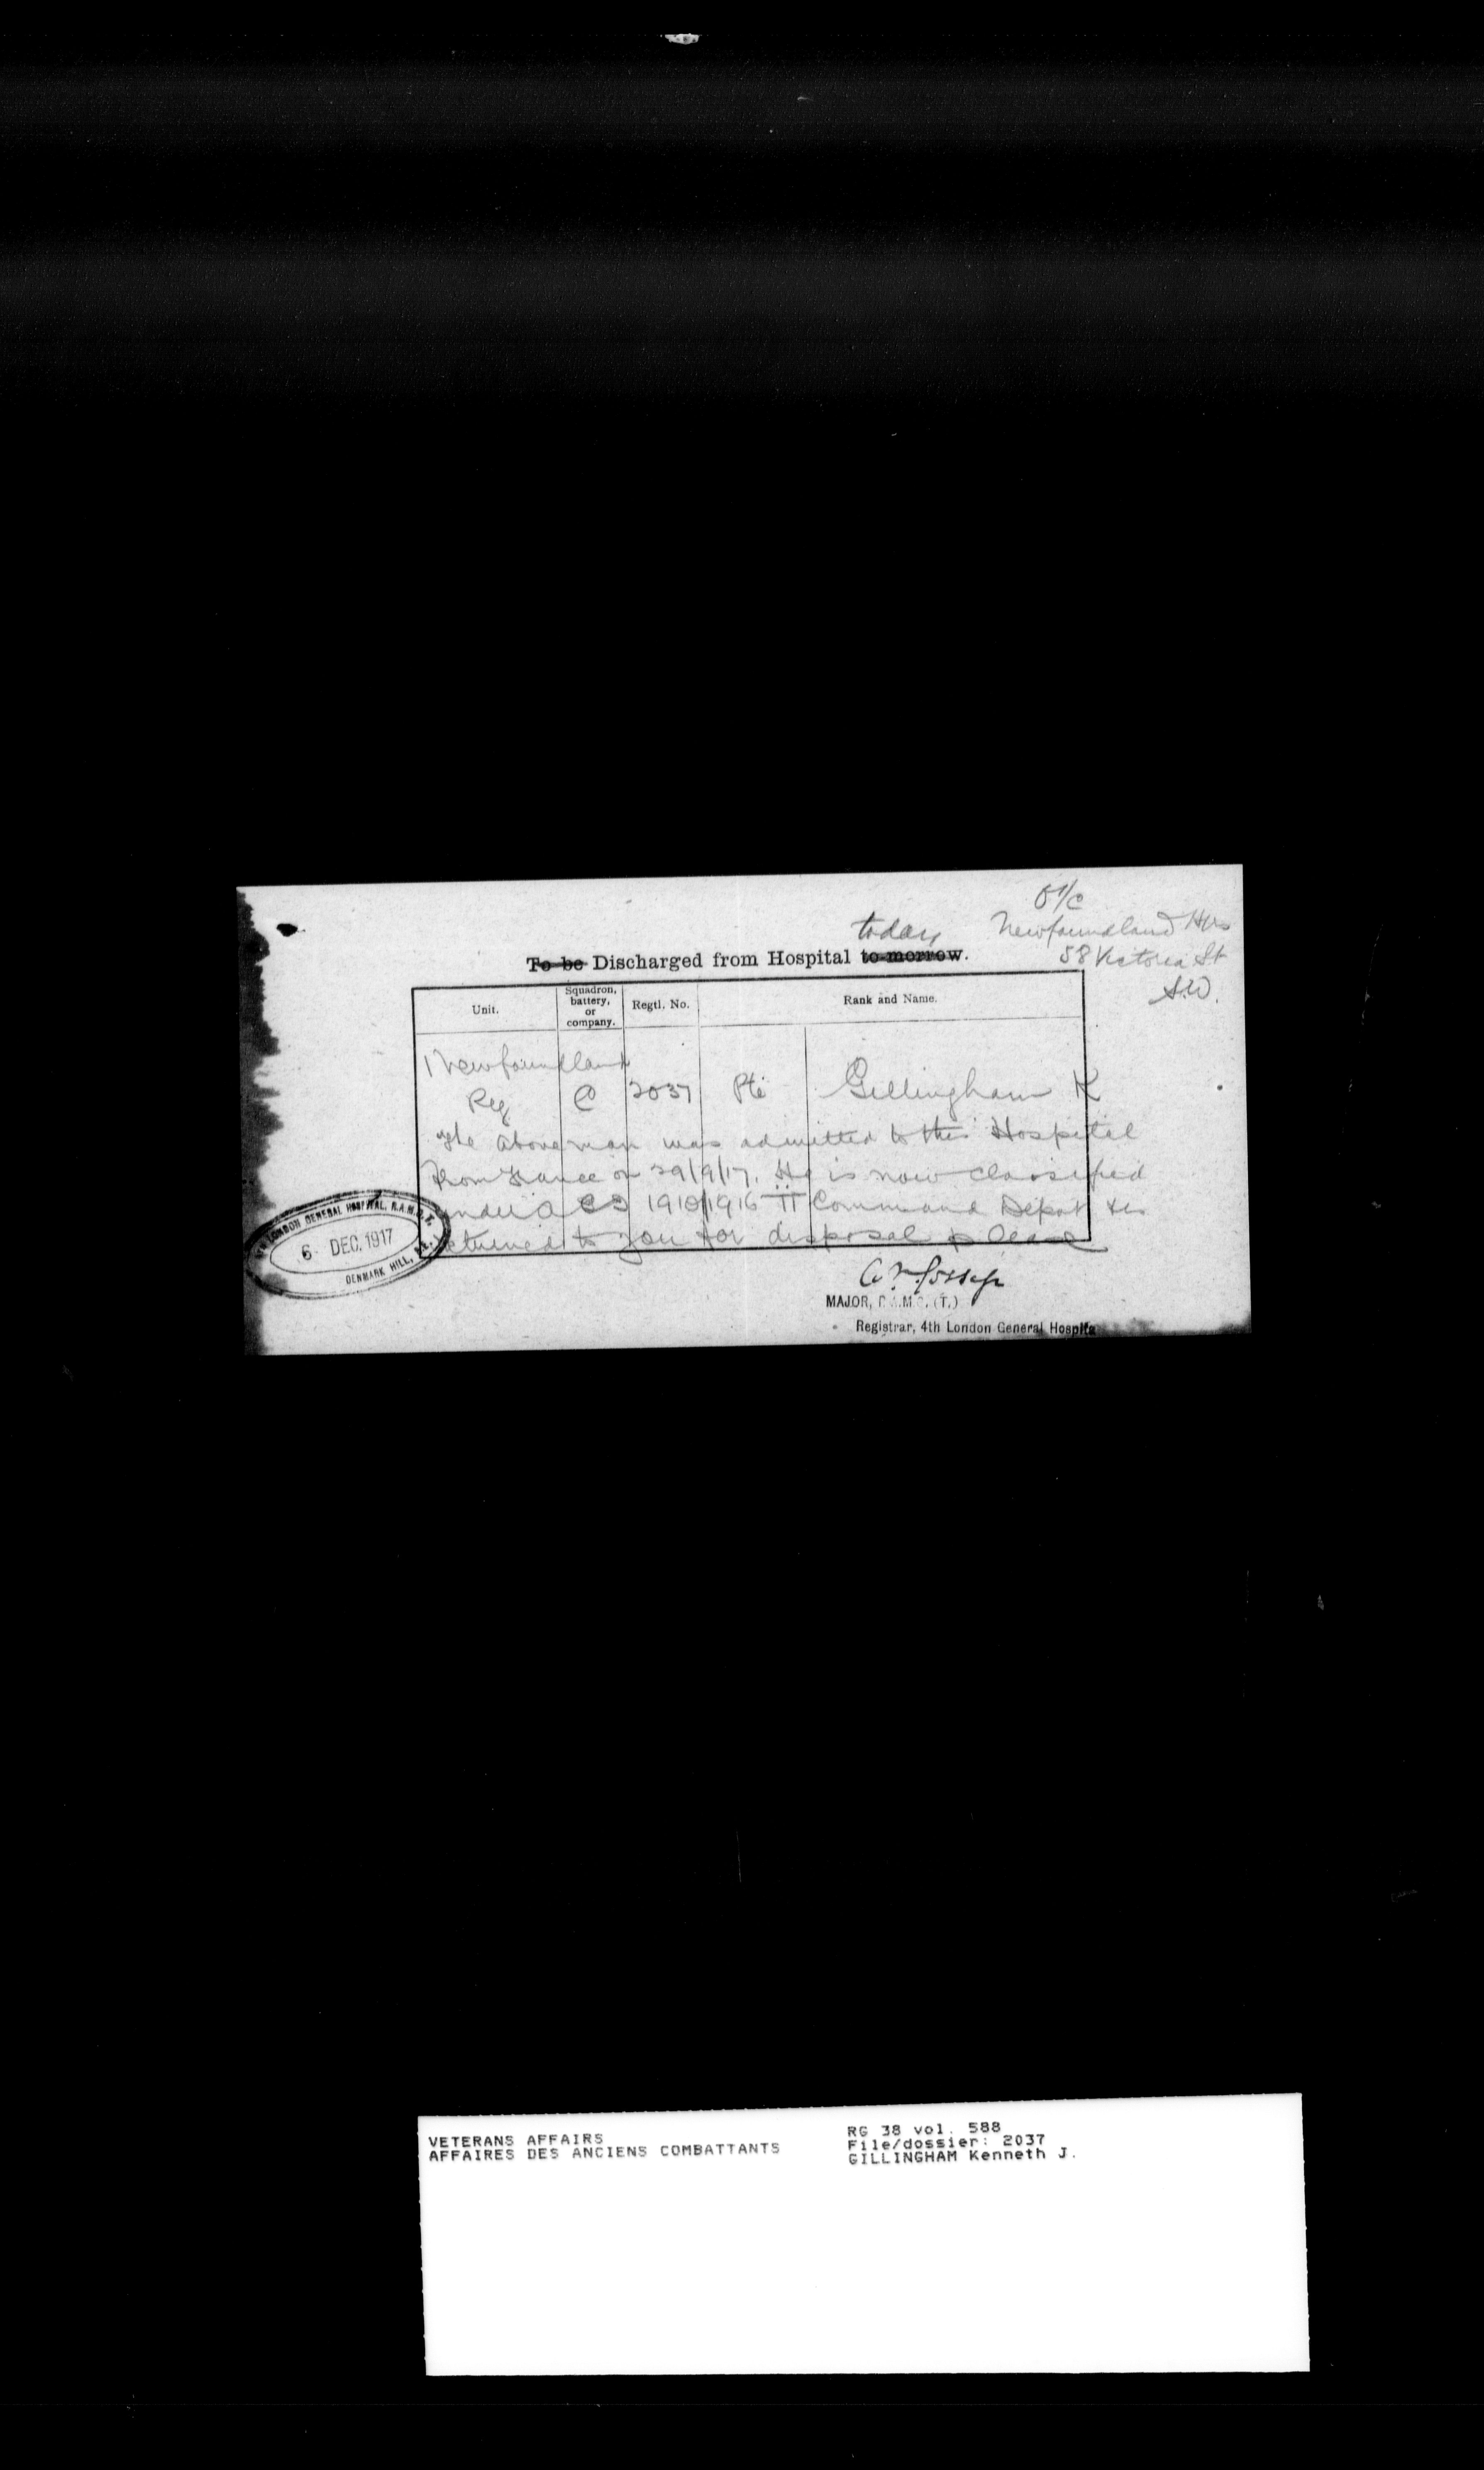 O i/c
Newfoundland Hqs
58 Victoria St
S.W.
today
To be Discharged from Hospital to-morrow.
Unit.
Squadron, battery, or company.
Regtl. No.
Rank and Name.
1 Newfoundland
Reg C 2037 Pte Gillingham K
The above man was admitted to this Hospital
from France on 29/9/17. He is now classified
under A C I 1910/1916 II Command Depot &
returned to you for disposal please
MAJOR, R.A.M.C. (T.)
Registrar, 4th London General Hospita
LONDON GENERAL HOSPITAL, R.A.M.C.T.
6 DEC. 1917
DENMARK HILL, S.E.
VETERANS AFFAIRS
AFFAIRES DES ANCIENS COMBATTANTS
RG 38 vol. 588
File/dossier: 2037
GILLINGHAM Kenneth J.